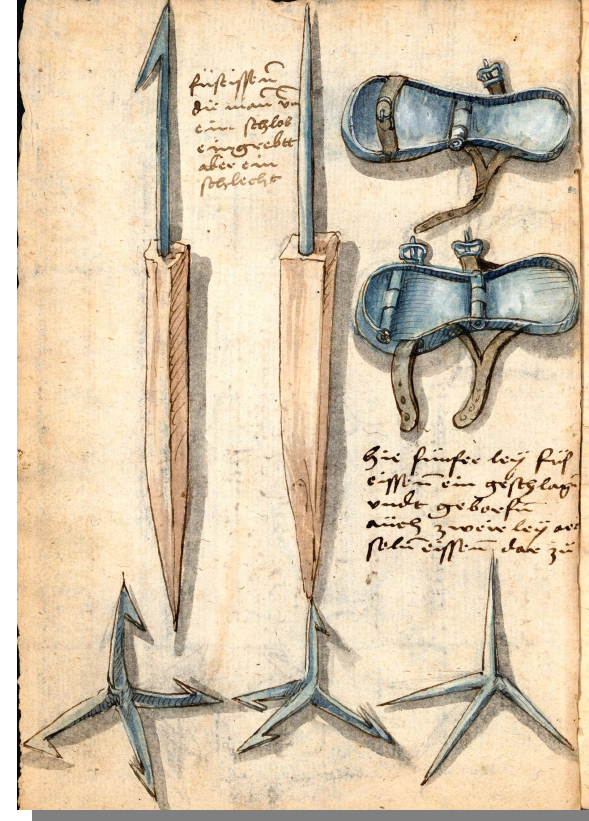 füseissen
die man vn
ein schlos
eingrebtt
aber ein
schlecht
hie fünfer leÿ füs
eissen ein geschlagen
vndt geborfen
aüch zweier leÿ
solen eissen dar zü